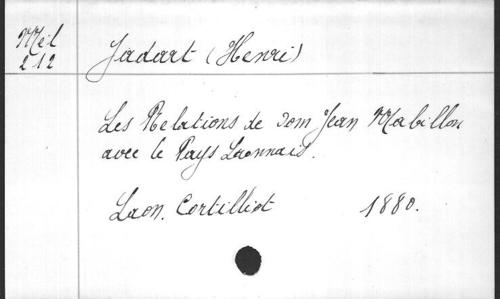 Mél
212
Jadart (Henri)
Les Relations de dom Jean Mabillon
avec le Pays Laonnais.
Laon. Cortilliot 1880.